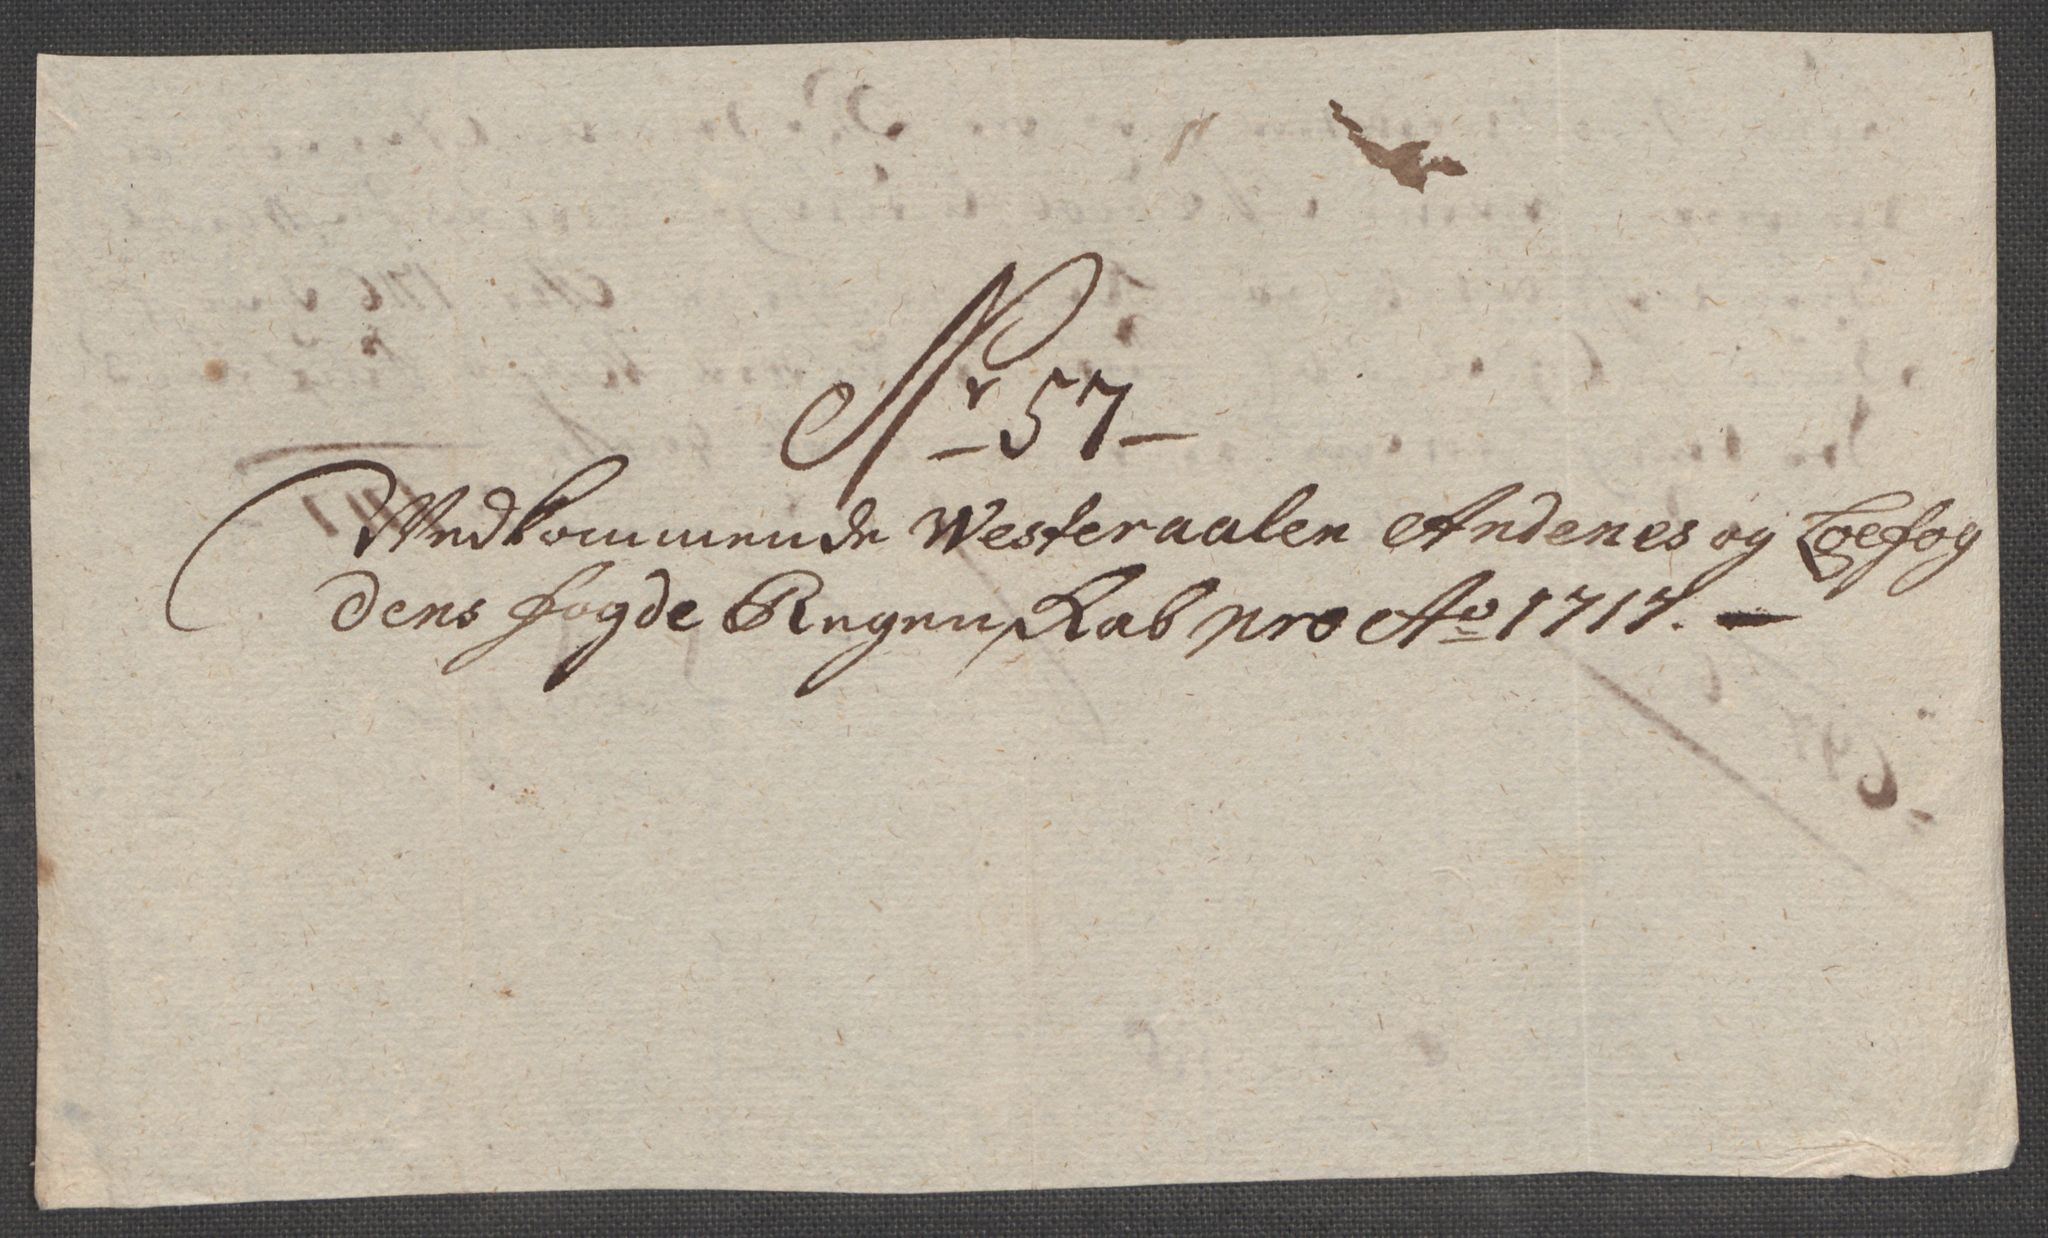 Nr 57
Vedkommende Westeraalen Andenes og Loefog
dens fogde Regenskab pro Ao 1717.